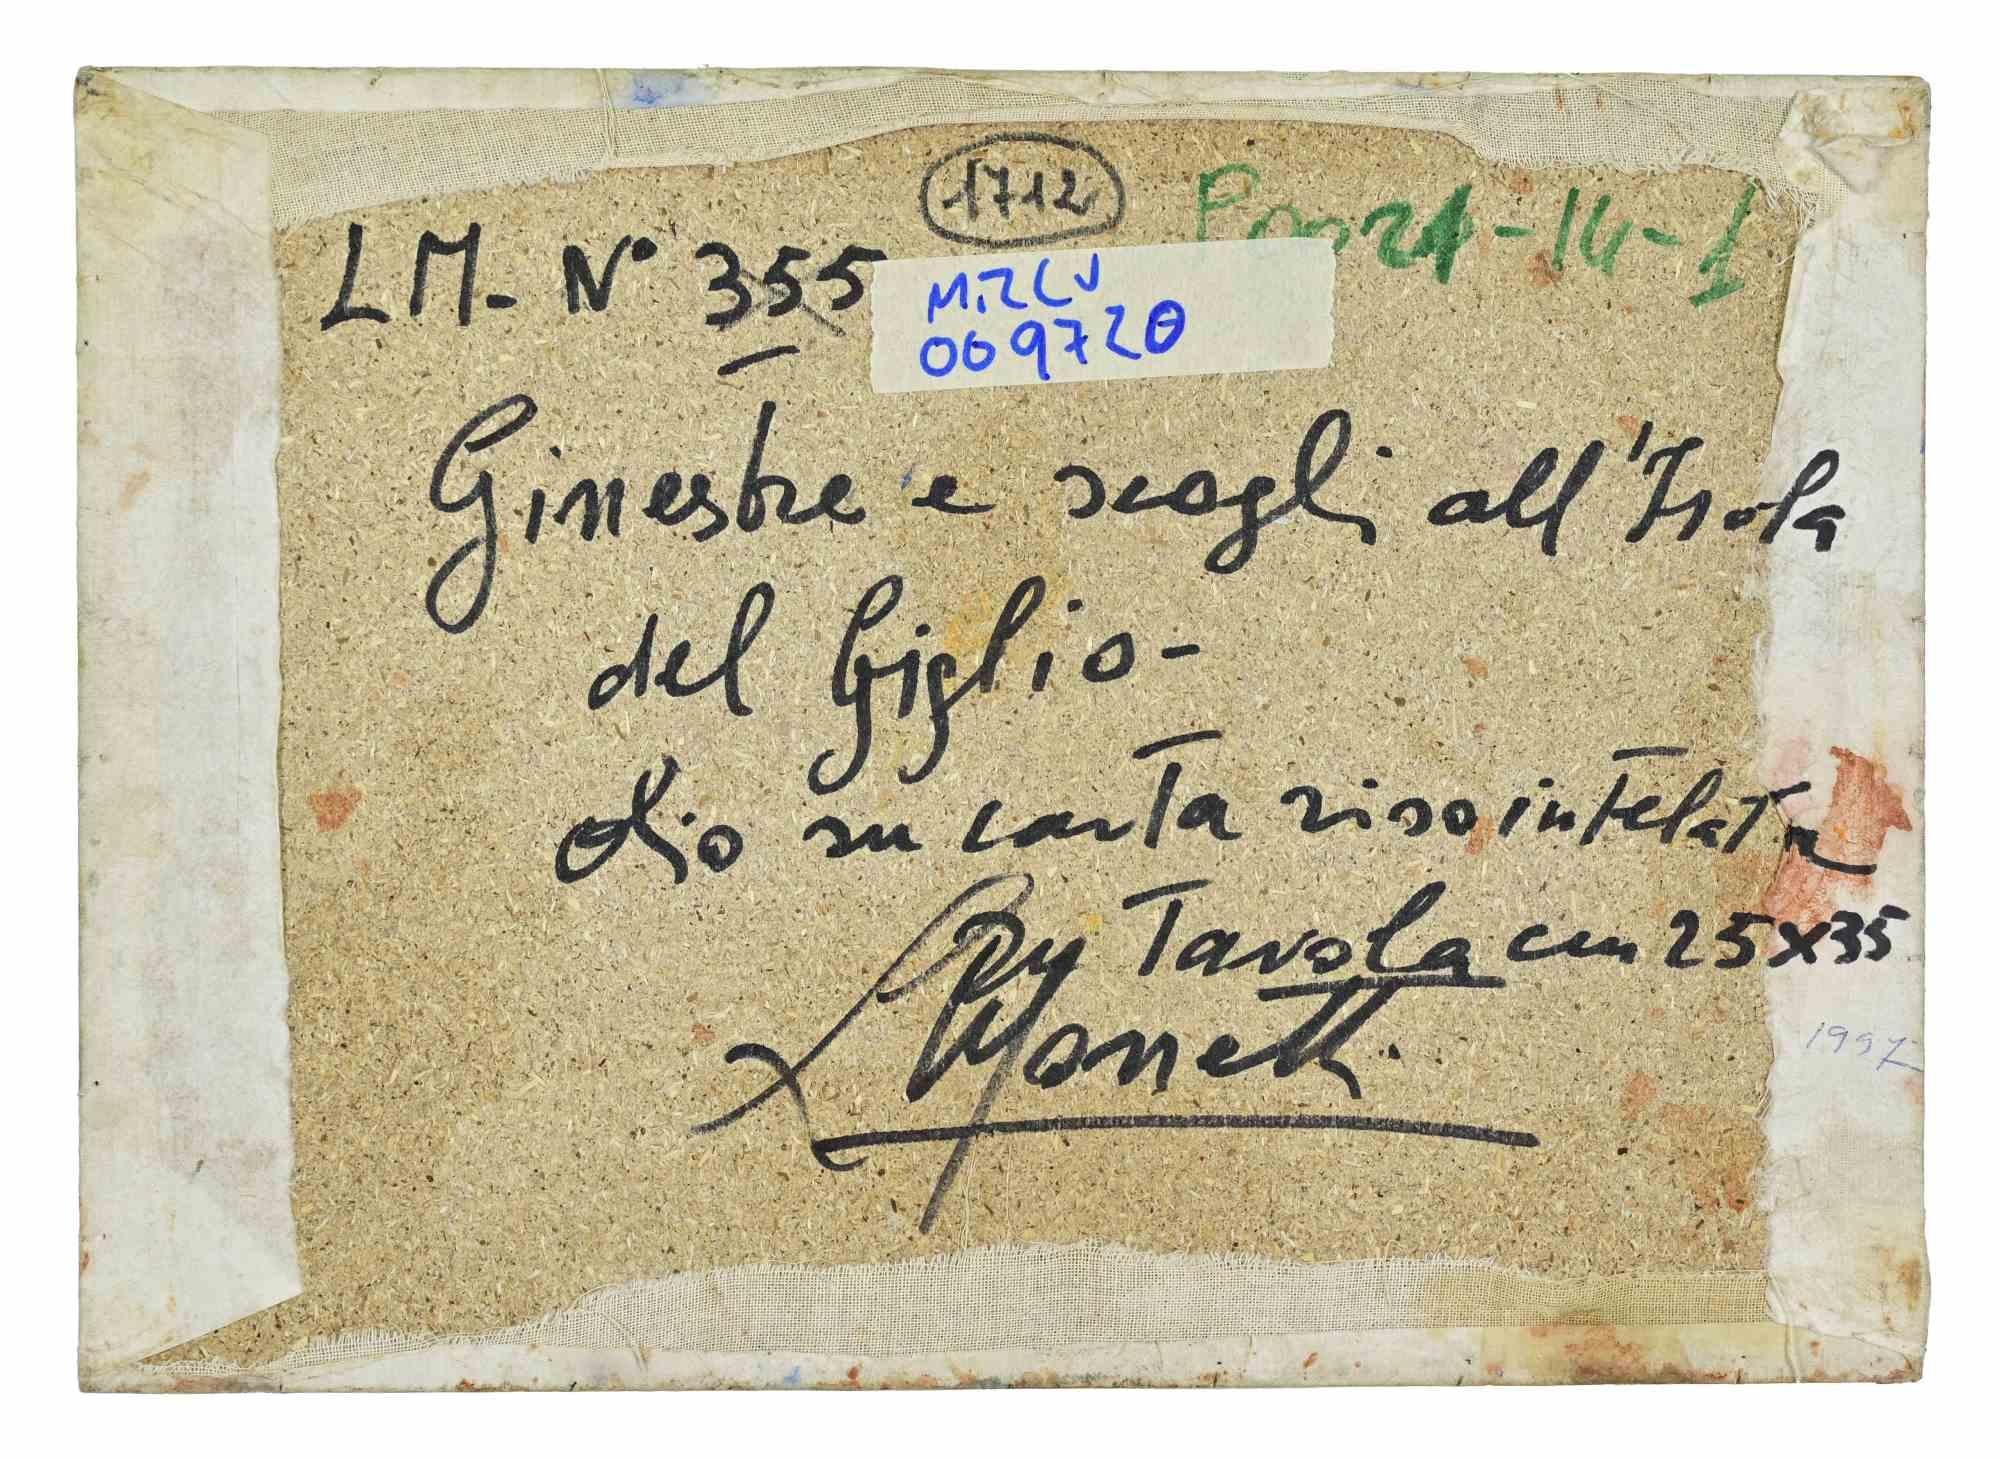 1712
21-14-1
LM- N° 355
009720
Ginestre e scogli all'Isola
del Giglio-
olio su carta riso intelata
su Tavola cm 25x35
L. Monetti.
1997